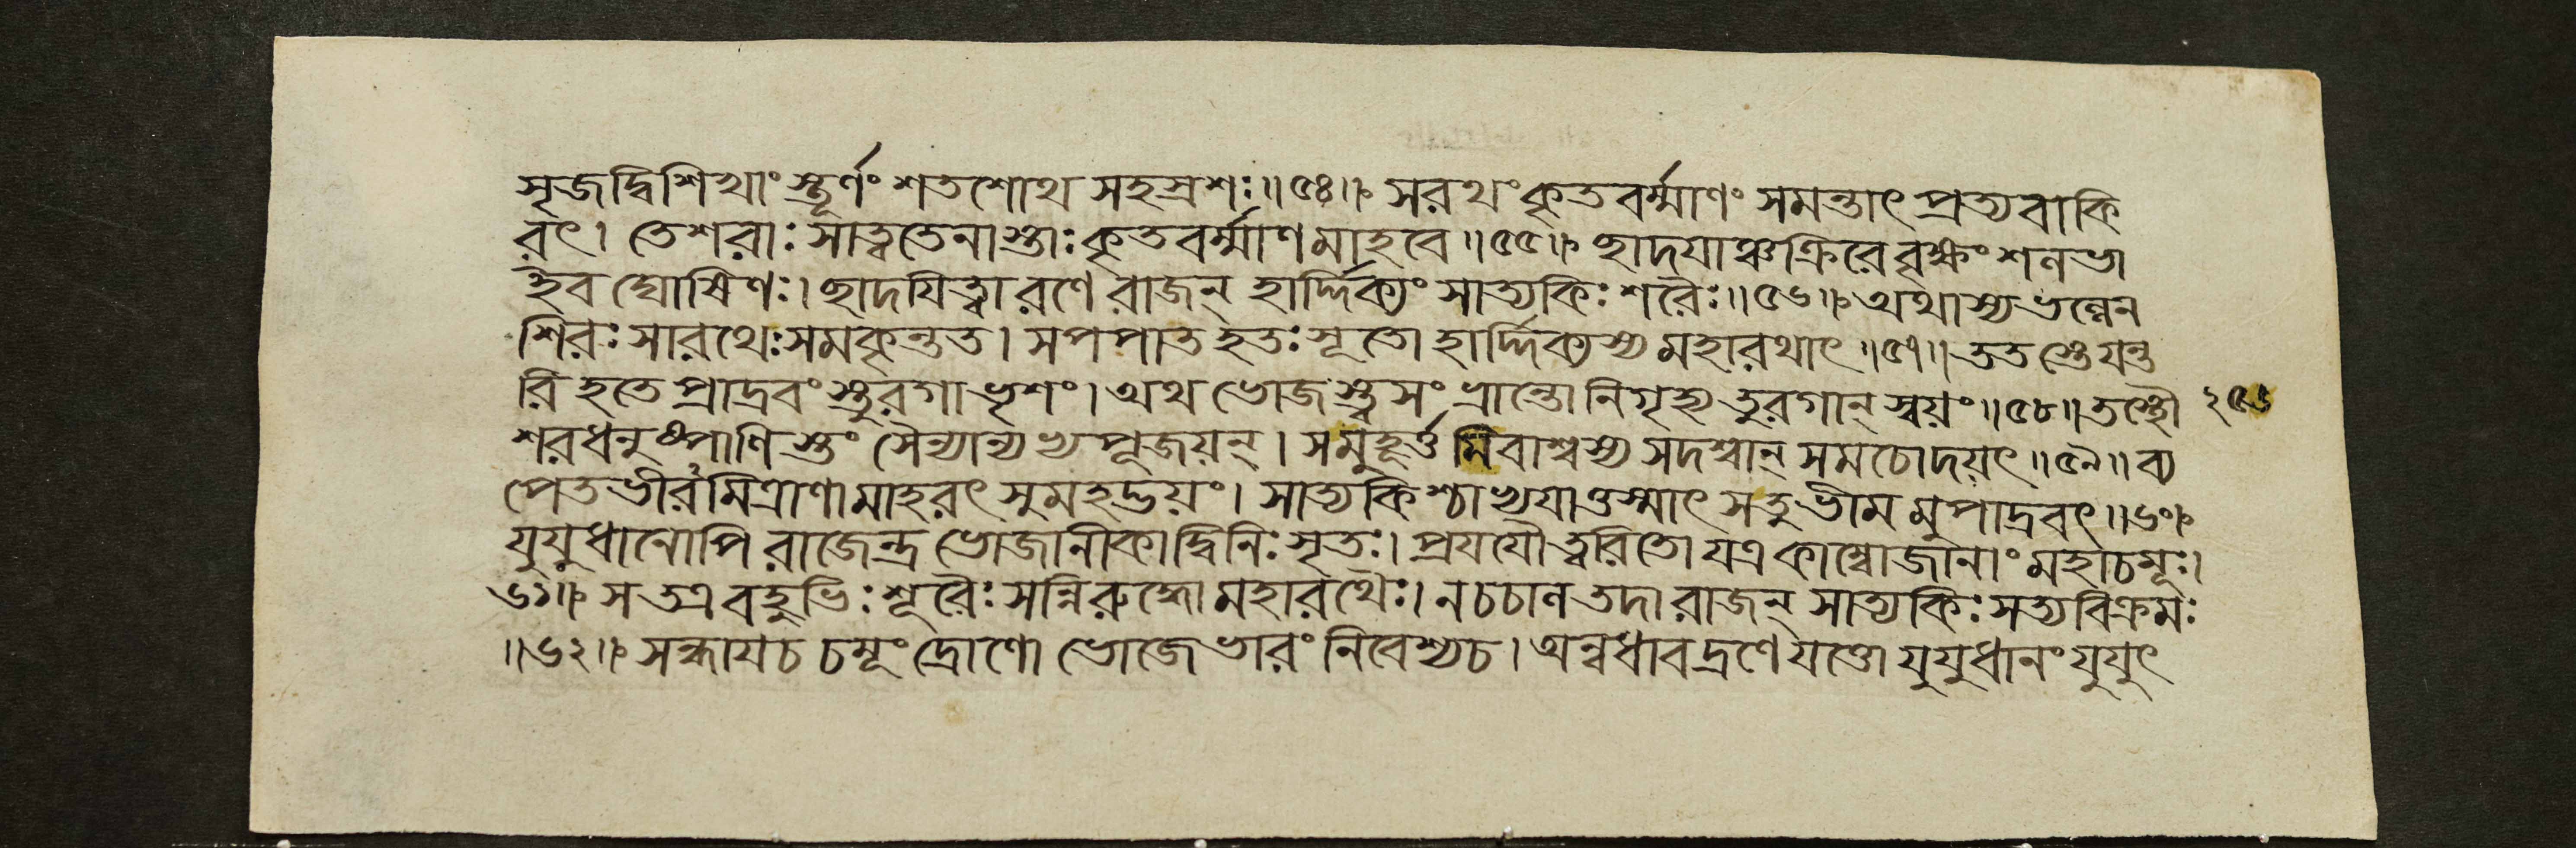 সৃজদ্বিশিখাংস্তূর্ণং শতশোথ সহস্রশঃ॥৫৪॥ সরথং কৃতবর্ম্মাণং সমন্তাৎ প্রত্যবাকি
রৎ। তেশরাঃ সাত্বতেনাস্তাঃ কৃতবর্ম্মাণমাহবে॥৫৫॥ ছাদযাঞ্চক্রিরে বৃক্ষং শনভা
ইব ঘোষিণঃ। ছাদযিত্বা রণে রাজন্ হার্দ্দিক্যং সাত্যকিঃ শরৈঃ॥৫৬॥ অথাস্য ভল্লেন
শিরঃ সারথেঃ সমকৃন্তত। সপপাত হতঃ সূতো হার্দ্দিক্যস্য মহারথাৎ॥৫৭॥ ততস্তে যন্ত
রি হতে প্রাদ্রবংস্তুরগা ভৃশং। অথ ভোজস্ত্বসংভ্রান্তো নিগৃহ্য তুরগান্ স্বয়ং॥৫৮॥ তস্থৌ ২৫৬
শরধনুষ্পাণিস্তং সৈন্যান্যভ্যপূজয়ন্। সমুহূর্ত্তমিবাশ্বস্য সদশ্বান্ সমচোদয়ৎ॥৫৯॥ ব্য
পেতভীরমিত্রাণামাহরৎ সুমহদ্ভয়ং। সাত্যকিশ্চাভ্যযাত্তস্মাৎ সতুভীমমুপাদ্রবৎ॥৬০॥
যুযুধানোপি রাজেন্দ্র ভোজানীকাদ্বিনিঃসৃতঃ। প্রযযৌ ত্বরিতো যত্র কাম্বোজানাং মহাচমূঃ।
৬১॥ সতত্র বহুভিঃ শূরৈঃ সন্নিরুদ্ধো মহারথৈঃ। নচচাল তদা রাজন্ সাত্যকিঃ সত্যবিক্রমঃ
॥৬২॥ সন্ধাযচ চমূং দ্রোণো ভোজে ভারং নিবেশ্যচ। অন্বধাবদ্রণে যত্তো যুযুধানং যুযুৎ